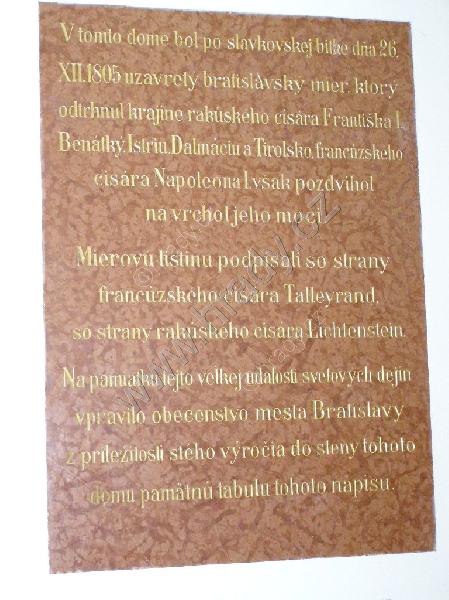 V tomto dome bol po slavkovskej bitke dňa 26.
XII.1805 uzavretý bratislavský mier, ktorý
odtrhnul krajine rakúskeho cisára Františka I.
Benátky, Istriu, Dalmáciu a Tirolsko, francúzskeho
cisára Napoleona I.však pozdvihol
na vrchol jeho moci.
Mierovú listinu podpísali so strany
francúzskeho cisára Talleyrand,
so strany rakúskeho cisára Lichtenstein.
Na pamiatku tejto velkej udalosti svetových dejín
vpravilo obecenstvo mesta Bratislavy
z príležitosti stého výročia do steny tohoto
domu pamätnú tabulu tohoto nápisu.
www.hrady.cz